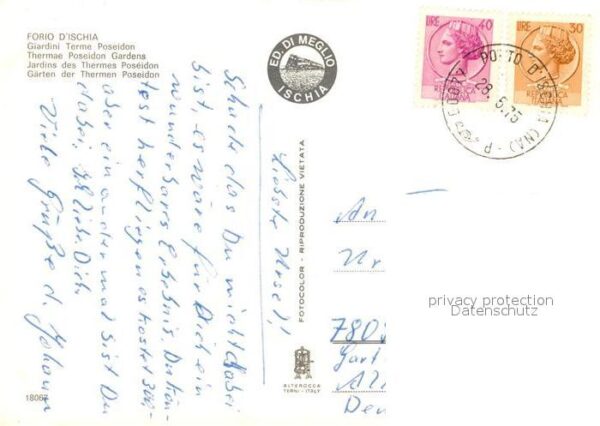 FORIO D'ISCHIA
Giardini Terme Poseidon
Thermae Poseidon Gardens
Jardins des Thermes Poséidon
Gärten der Thermen Poseidon
ED. DI MEGLIO
ISCHIA
LIRE 40
LIRE 30
PORTO D'ISCHIA (NA)
28.5.75
Liebste Ursel!
Schade das Du nicht dabei
bist, es wäre für Dich ein
wunderbares Erlebnis. Du könn-
test herfliegen es kostet 300,-
aber ein andermal bist Du
dabei, Ich liebe Dich.
Viele Grüße d. Johann
FOTOCOLOR - RIPRODUZIONE VIETATA
ALTEROCCA
TERNI - ITALY
An
780
Gart
18067
privacy protection
Datenschutz